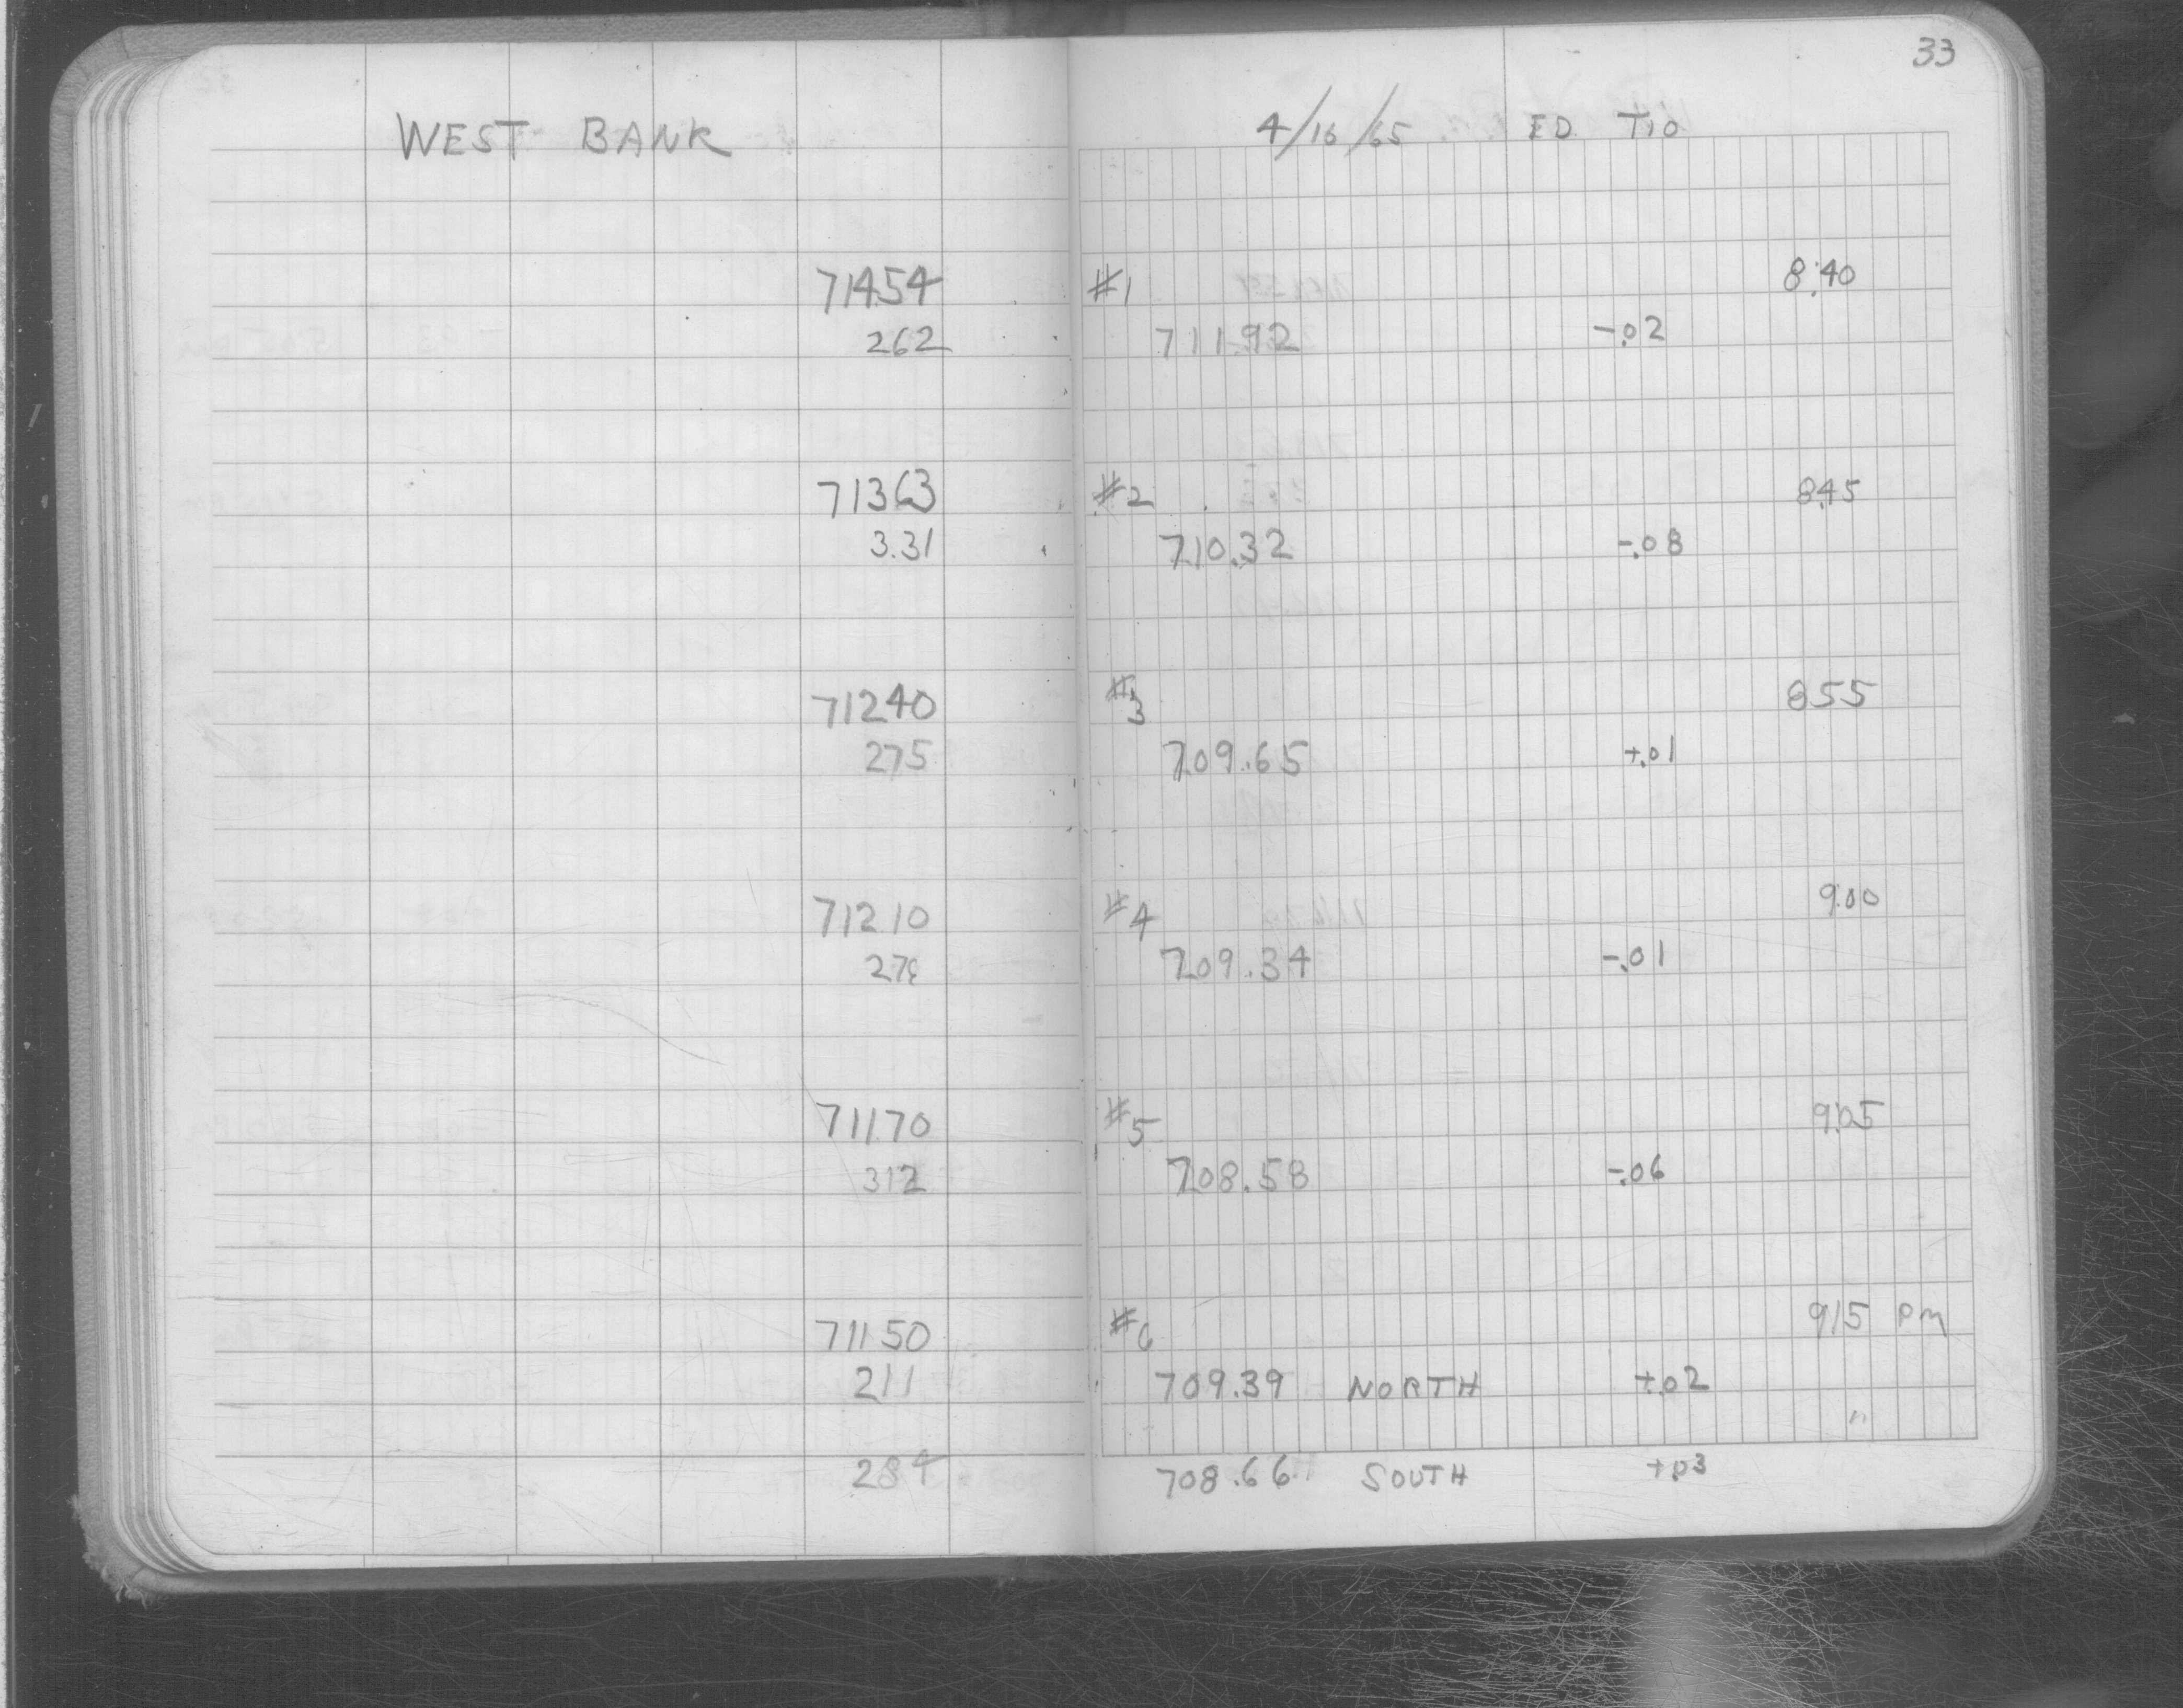 33
WEST BANK 4/16/65 ED TIO
71454 #1 8:40
262 711.92 -.02
71363 #2 845
3.31 710.32 -.08
71240 #3 855
275 709.65 +.01
71210 #4 9:00
276 709.34 -.01
71170 #5 9:05
312 708.58 -.06
71150 #6 915 PM
211 709.39 NORTH +.02
"
284 708.66 SOUTH +.03